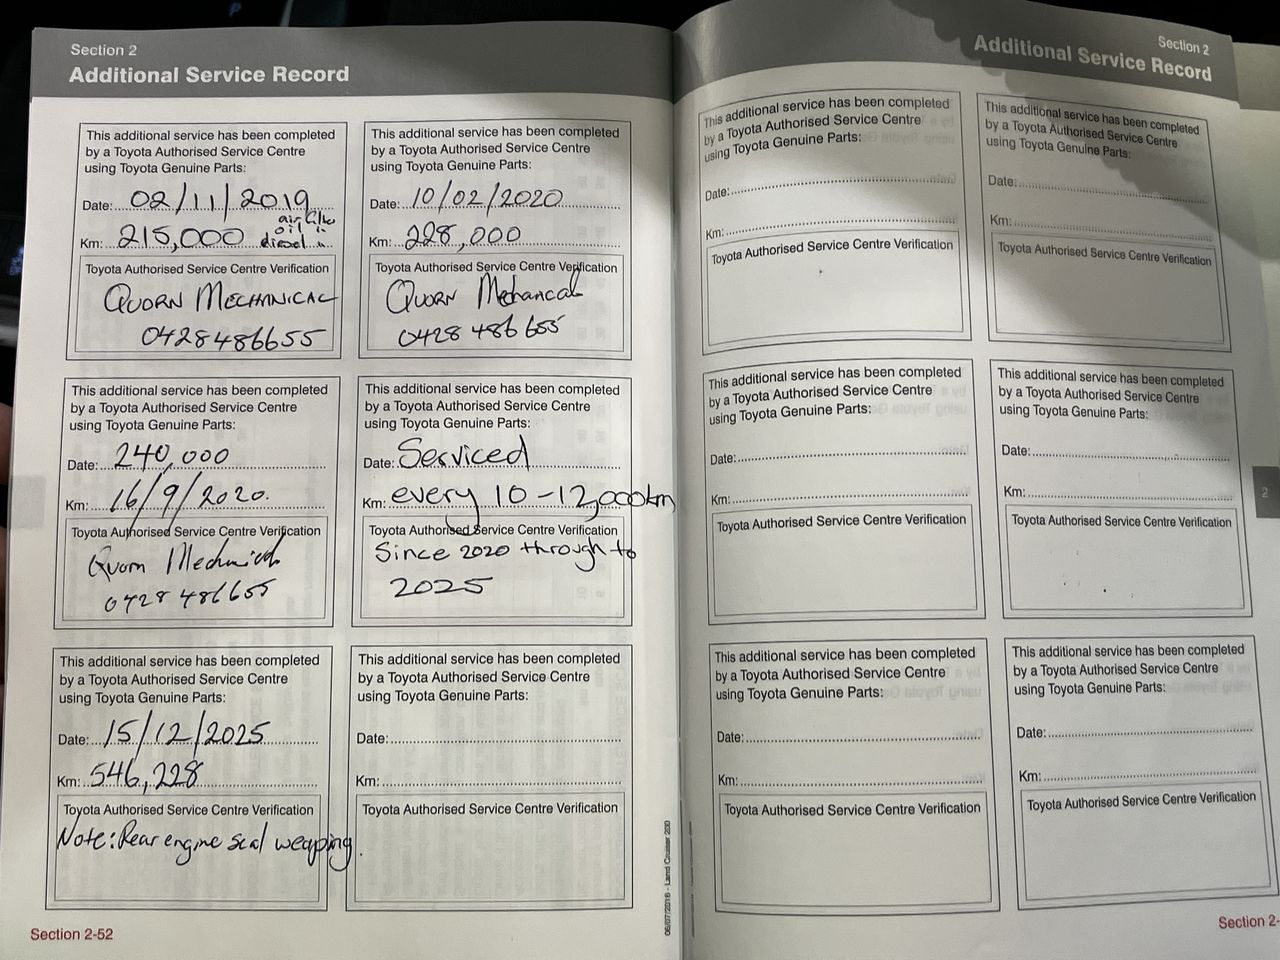 Section 2
Additional Service Record
This additional service has been completed
by a Toyota Authorised Service Centre
using Toyota Genuine Parts:
Date: 02/11/2019
air filter
oil "
Km: 215,000 diesel "
Toyota Authorised Service Centre Verification
QUORN MECHANICAL
0428486655
This additional service has been completed
by a Toyota Authorised Service Centre
using Toyota Genuine Parts:
Date: 10/02/2020
Km: 228,000
Toyota Authorised Service Centre Verification
QUORN Mechancal
0428 486 655
This additional service has been completed
by a Toyota Authorised Service Centre
using Toyota Genuine Parts:
Date: 240,000
Km: 16/9/2020.
Toyota Authorised Service Centre Verification
Quorn Mechanical
0428 486655
This additional service has been completed
by a Toyota Authorised Service Centre
using Toyota Genuine Parts:
Date: Serviced
Km: every 10-12,000km
Toyota Authorised Service Centre Verification
Since 2020 through to
2025
This additional service has been completed
by a Toyota Authorised Service Centre
using Toyota Genuine Parts:
Date: 15/12/2025
Km: 546,228
Toyota Authorised Service Centre Verification
Note: Rear engine seal weaping.
This additional service has been completed
by a Toyota Authorised Service Centre
using Toyota Genuine Parts:
Date:
Km:
Toyota Authorised Service Centre Verification
Section 2-52
06/07/2016 - Land Cruiser 200
Section 2
Additional Service Record
This additional service has been completed
by a Toyota Authorised Service Centre
using Toyota Genuine Parts:
Date:
Km:
Toyota Authorised Service Centre Verification
This additional service has been completed
by a Toyota Authorised Service Centre
using Toyota Genuine Parts:
Date:
Km:
Toyota Authorised Service Centre Verification
This additional service has been completed
by a Toyota Authorised Service Centre
using Toyota Genuine Parts:
Date:
Km:
Toyota Authorised Service Centre Verification
This additional service has been completed
by a Toyota Authorised Service Centre
using Toyota Genuine Parts:
Date:
Km:
Toyota Authorised Service Centre Verification
2
This additional service has been completed
by a Toyota Authorised Service Centre
using Toyota Genuine Parts:
Date:
Km:
Toyota Authorised Service Centre Verification
This additional service has been completed
by a Toyota Authorised Service Centre
using Toyota Genuine Parts:
Date:
Km:
Toyota Authorised Service Centre Verification
Section 2-